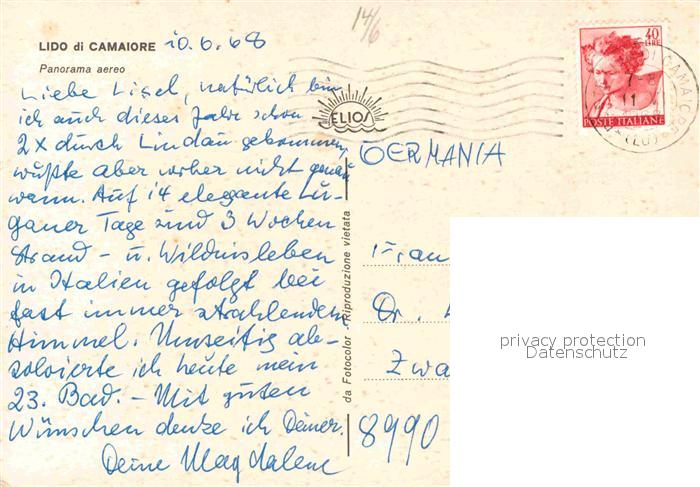 14/6
LIDO di CAMAIORE 10.6.68
Panorama aereo
Liebe Lisel, natürlich bin
ich auch dieses Jahr schon
2x durch Lindau gekommen,
wußte aber vorher nicht genau
wann. Auf 14 elegante Lu-
ganer Tage sind 3 Wochen
Strand- u. Wildnisleben
in Italien gefolgt bei
fast immer strahlendem
Himmel. Umseitig ab-
solvierte ich heute mein
23. Bad. - Mit guten
Wünschen denke ich Deiner.
Deine Magdalene
ELIOS
da Fotocolor - Riproduzione vietata
40
LIRE
POSTE ITALIANE
CAMAIORE
(LU)
GERMANIA
Frau
Dr.
Zwa
8990
privacy protection
Datenschutz